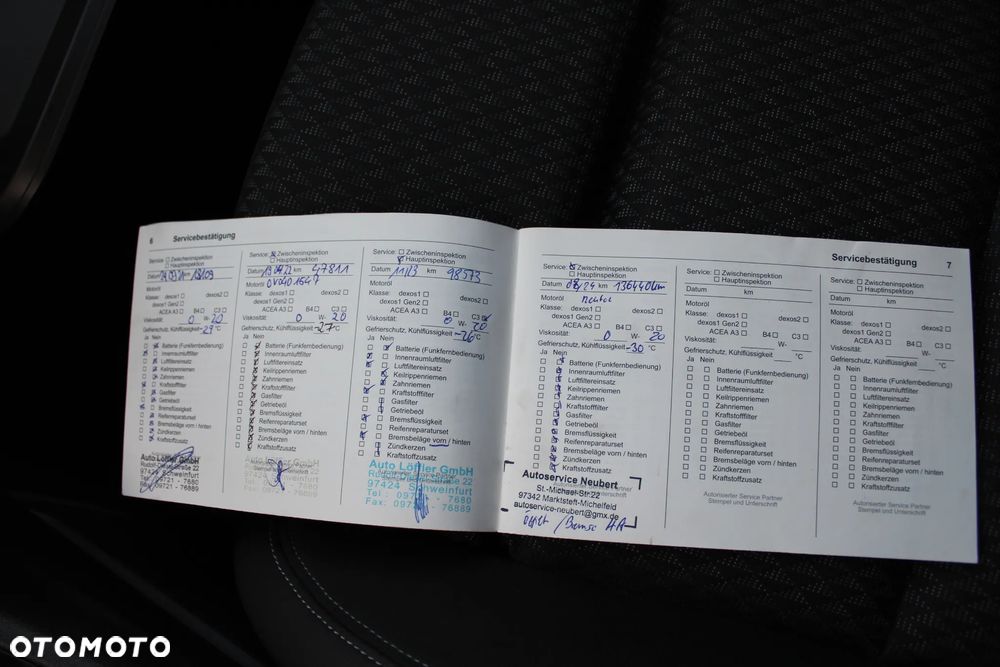 6 Servicebestätigung
Service: Zwischeninspektion
Hauptinspektion
Datum km
Motoröl
Klasse: dexos1 dexos2
dexos1 Gen2
ACEA A3 B4 C3
Viskosität: 0 W- 20
Gefrierschutz, Kühlflüssigkeit -29 °C
Ja Nein
Batterie (Funkfernbedienung)
Innenraumluftfilter
Luftfiltereinsatz
Keilrippenriemen
Zahnriemen
Kraftstofffilter
Gasfilter
Getriebeöl
Bremsflüssigkeit
Reifenreparaturset
Bremsbeläge vorn / hinten
Zündkerzen
Kraftstoffzusatz
Auto Löffler GmbH
97424 Schweinfurt
Tel.: 09721 - 7680
Fax: 09721 - 76889
Service: Zwischeninspektion
Hauptinspektion
Datum km 47811
Motoröl
Klasse: dexos1 dexos2
dexos1 Gen2
ACEA A3 B4 C3
Viskosität: 0 W- 20
Gefrierschutz, Kühlflüssigkeit -27 °C
Ja Nein
Batterie (Funkfernbedienung)
Innenraumluftfilter
Luftfiltereinsatz
Keilrippenriemen
Zahnriemen
Kraftstofffilter
Gasfilter
Getriebeöl
Bremsflüssigkeit
Reifenreparaturset
Bremsbeläge vorn / hinten
Zündkerzen
Kraftstoffzusatz
Service: Zwischeninspektion
Hauptinspektion
Datum 11/23 km 98573
Motoröl
Klasse: dexos1 dexos2
dexos1 Gen2
ACEA A3 B4 C3
Viskosität: 0 W- 20
Gefrierschutz, Kühlflüssigkeit -26 °C
Ja Nein
Batterie (Funkfernbedienung)
Innenraumluftfilter
Luftfiltereinsatz
Keilrippenriemen
Zahnriemen
Kraftstofffilter
Gasfilter
Getriebeöl
Bremsflüssigkeit
Reifenreparaturset
Bremsbeläge vorn / hinten
Zündkerzen
Kraftstoffzusatz
Auto Löffler GmbH
97424 Schweinfurt
Tel.: 09721 - 7680
Fax: 09721 - 76889
Servicebestätigung 7
Service: Zwischeninspektion
Hauptinspektion
Datum 08/24 136440km
Motoröl
Klasse: dexos1 dexos2
dexos1 Gen2
ACEA A3 B4 C3
Viskosität: 0 W- 20
Gefrierschutz, Kühlflüssigkeit -30 °C
Ja Nein
Batterie (Funkfernbedienung)
Innenraumluftfilter
Luftfiltereinsatz
Keilrippenriemen
Zahnriemen
Kraftstofffilter
Gasfilter
Getriebeöl
Bremsflüssigkeit
Reifenreparaturset
Bremsbeläge vorn / hinten
Zündkerzen
Kraftstoffzusatz
Autoservice Neubert
St.-Michael-Str.22
97342 Marktsteft-Michelfeld
autoservice-neubert@gmx.de
Service: Zwischeninspektion
Hauptinspektion
Datum km
Motoröl
Klasse: dexos1 dexos2
dexos1 Gen2
ACEA A3 B4 C3
Viskosität: W-
Gefrierschutz, Kühlflüssigkeit °C
Ja Nein
Batterie (Funkfernbedienung)
Innenraumluftfilter
Luftfiltereinsatz
Keilrippenriemen
Zahnriemen
Kraftstofffilter
Gasfilter
Getriebeöl
Bremsflüssigkeit
Reifenreparaturset
Bremsbeläge vorn / hinten
Zündkerzen
Kraftstoffzusatz
Autorisierter Service Partner
Stempel und Unterschrift
Service: Zwischeninspektion
Hauptinspektion
Datum km
Motoröl
Klasse: dexos1 dexos2
dexos1 Gen2
ACEA A3 B4 C3
Viskosität: W-
Gefrierschutz, Kühlflüssigkeit °C
Ja Nein
Batterie (Funkfernbedienung)
Innenraumluftfilter
Luftfiltereinsatz
Keilrippenriemen
Zahnriemen
Kraftstofffilter
Gasfilter
Getriebeöl
Bremsflüssigkeit
Reifenreparaturset
Bremsbeläge vorn / hinten
Zündkerzen
Kraftstoffzusatz
Autorisierter Service Partner
Stempel und Unterschrift
OTOMOTO